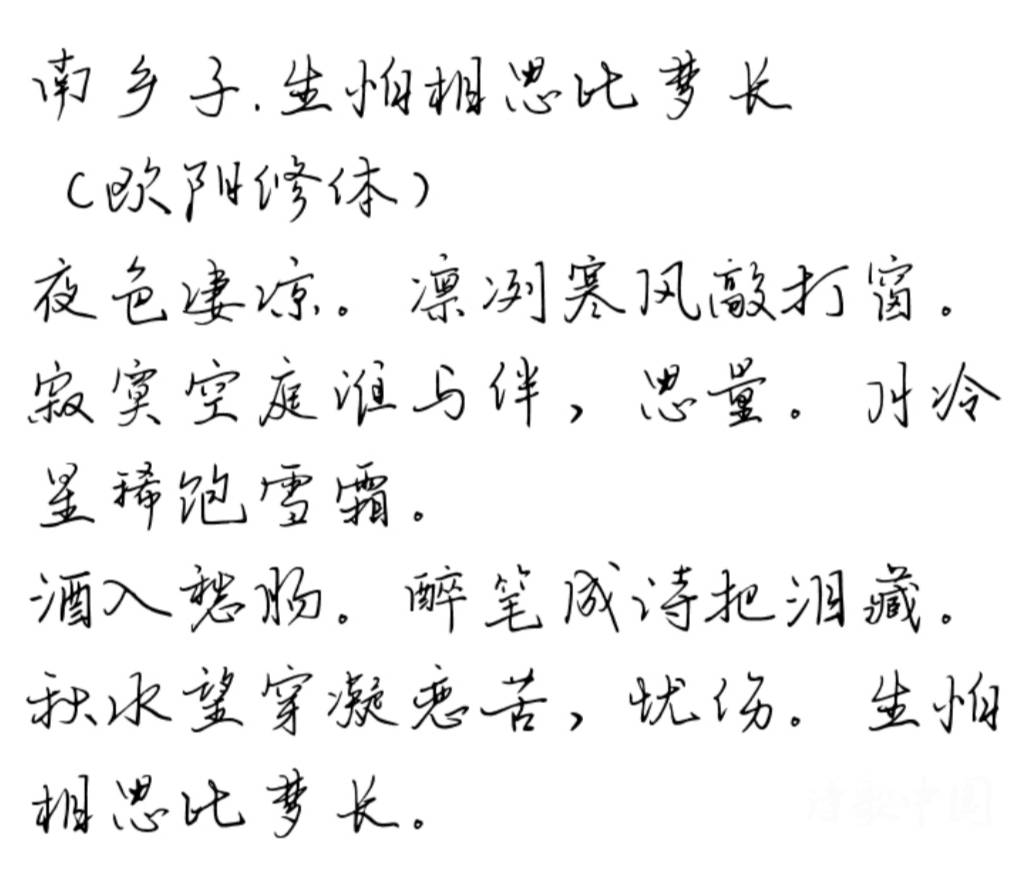 南乡子.生怕相思比梦长
(欧阳修体)
夜色凄凉。凛冽寒风敲打窗。
寂寞空庭谁与伴,思量。月冷
星稀饱雪霜。
酒入愁肠。醉笔成诗把泪藏。
秋水望穿凝恋苦,忧伤。生怕
相思比梦长。
诗歌中国